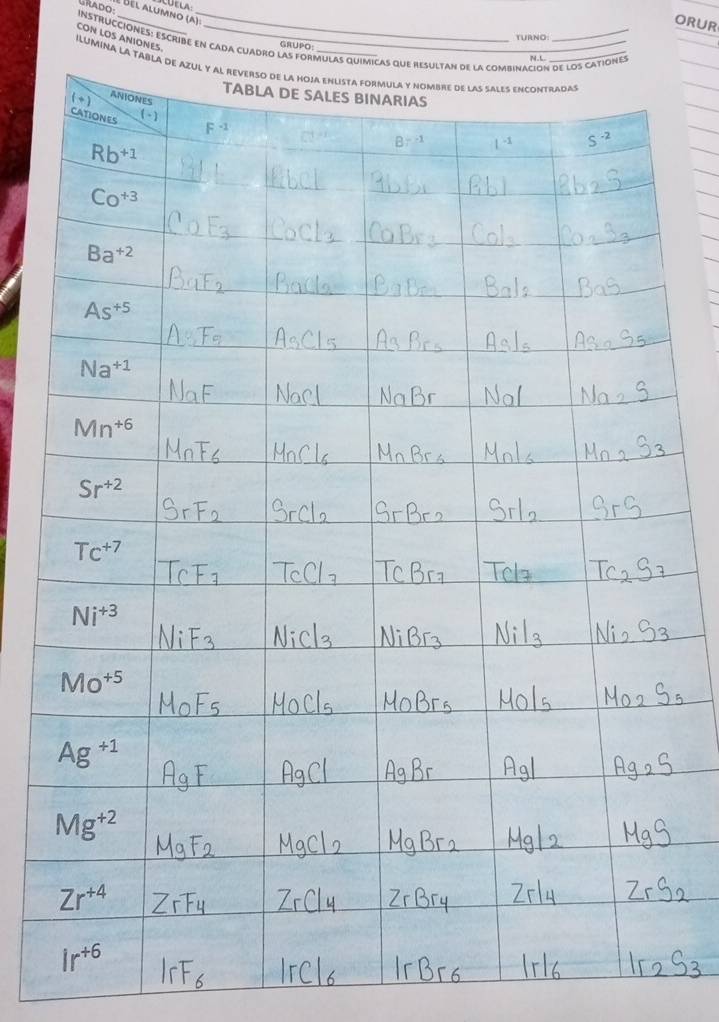 GRADO:
DEL ALUMNO (A):
TURNO:
ORUR
GRUPO:
N.L.
INSTRUCCIONES: ESCRIBE EN CADA CUADRO LAS FORMULAS QUIMICAS QUE RESULTAN DE LA COMBINACION DE LOS CATIONES
CON LOS ANIONES.
ILUMINA LA TABLA DE AZUL Y AL REVERSO DE LA HOJA ENLISTA FORMULA Y NOMBRE DE LAS SALES ENCONTRADAS
TABLA DE SALES BINARIAS
(+) ANIONES
CATIONES (-) F-1 Cl-1 Br-1 I-1 S-2
Rb+1 RbCl RbBr RbI Rb2S
Co+3 CoF3 CoCl3 CoBr3 CoI3 Co2S3
Ba+2 BaF2 BaCl2 BaBr2 BaI2 BaS
As+5 AsF5 AsCl5 AsBr5 AsI5 As2S5
Na+1 NaF NaCl NaBr NaI Na2S
Mn+6 MnF6 MnCl6 MnBr6 MnI6 Mn2S3
Sr+2 SrF2 SrCl2 SrBr2 SrI2 SrS
Tc+7 TcF7 TcCl7 TcBr7 TcI7 Tc2S7
Ni+3 NiF3 NiCl3 NiBr3 NiI3 Ni2S3
Mo+5 MoF5 MoCl5 MoBr5 MoI5 Mo2S5
Ag+1 AgF AgCl AgBr AgI Ag2S
Mg+2 MgF2 MgCl2 MgBr2 MgI2 MgS
Zr+4 ZrF4 ZrCl4 ZrBr4 ZrI4 ZrS2
Ir+6 IrF6 IrCl6 IrBr6 IrI6 Ir2S3